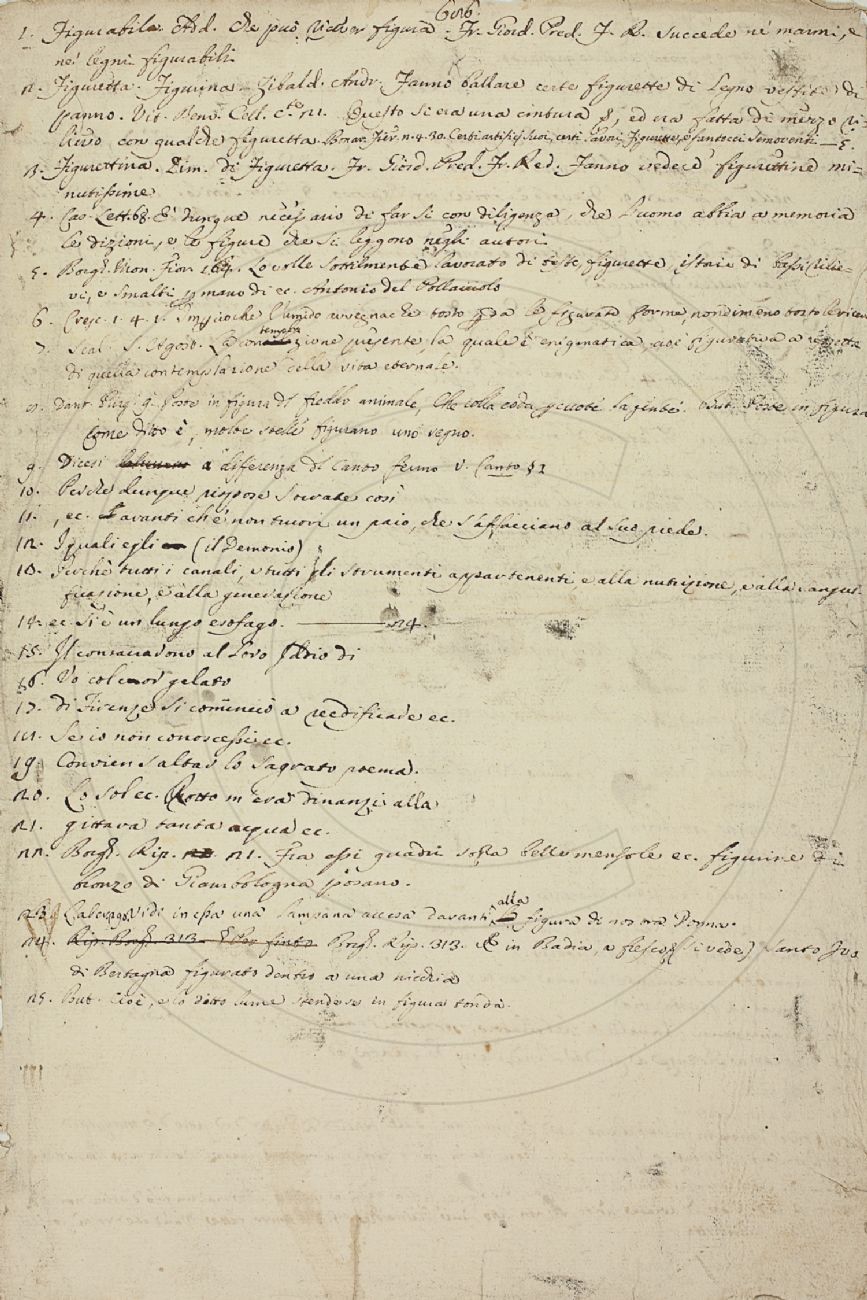 606
1. Figurabile. Add. Che può ricever figura. Fr. Giord. Pred. F. R. Succede ne' marmi, e
ne' legni figurabili.
2. Figuretta. Figurina. Zibald. Andr. Fanno ballare certe figurette di Legno vestite di
panno. Vit. Benv. Cell. 21. Questo si era una cintura, ed era fatta di mezzo ri-
lievo con qualche figuretta. Buonar. Fier. n. 4. 30. Certi artifizj suoi, certi figurette, e fantocci Semoventi
3. Figurettina. Dim. di Figuretta. Fr. Giord. Pred. Fr. Red. Fanno vedere figurettine mi-
nutissime
4. Lett. 68. E' dunque necessario di far si con diligenza, che l'uomo abbia a memoria
le dizioni, e le figure che si leggono negli autori.
5. Borgh. Mon. Fior. Lo volle sottilmente lavorato di teste, figurette, istorie di bassirilie-
vi, e smalti mano di ec. Antonio del Pollaiuolo
6. Cresc. 1. 4. 1. l'umido avvegnachè tosto la figurata forma, nondimeno tosto
7. Scal. S. Agost. La contemplazione presente, la quale è enigmatica, cioè figurativa a rispetto
di quella contemplazione della vita eternale.
8. Dant. Purg. 9. Poste in figura del freddo animale, Che colla coda percuote la gente. But. Poste in figura
Come ditto è, molte stelle figurano uno segno.
9. Dicesi a differenza di Canto fermo V. Canto § 1
10. Perchè dunque rispose Socrate così
11. , ec. Davanti che non trovi un paio, che s'affacciano al suo piede.
12. I quali egli (il Demonio)
13. Perchè tutti i canali, e tutti gli strumenti appartenenti, e alla nutrizione, e alla sangui-
ficazione, e alla generazione
14. ec. Si è un lungo esofago. 24.
15. consacravono al Loro Idio di
16. Vo col cuor gelato
17. di Firenze si cominciò a reedificare ec.
18. Se io non conoscessi ec.
19. Convien saltar lo sagrato poema.
20. Lo sol ec. Rotto m'era dinanzi alla
21. gittava tanta acqua ec.
22. Borgh. Rip. 21. Fra essi quadri sopra belle mensole ec. figurine di
bronzo di Giambologna posano.
23. Vidi in essa una lampana accesa davanti alla figura di nostra Donna.
24. Borgh. Rip. 313. E in Badia, a fresco (si vede) Santo Ivo
di Bertagna figurato dentro a una nicchia
25. But. Cioè, e lo detto lume stendersi in figura tonda.